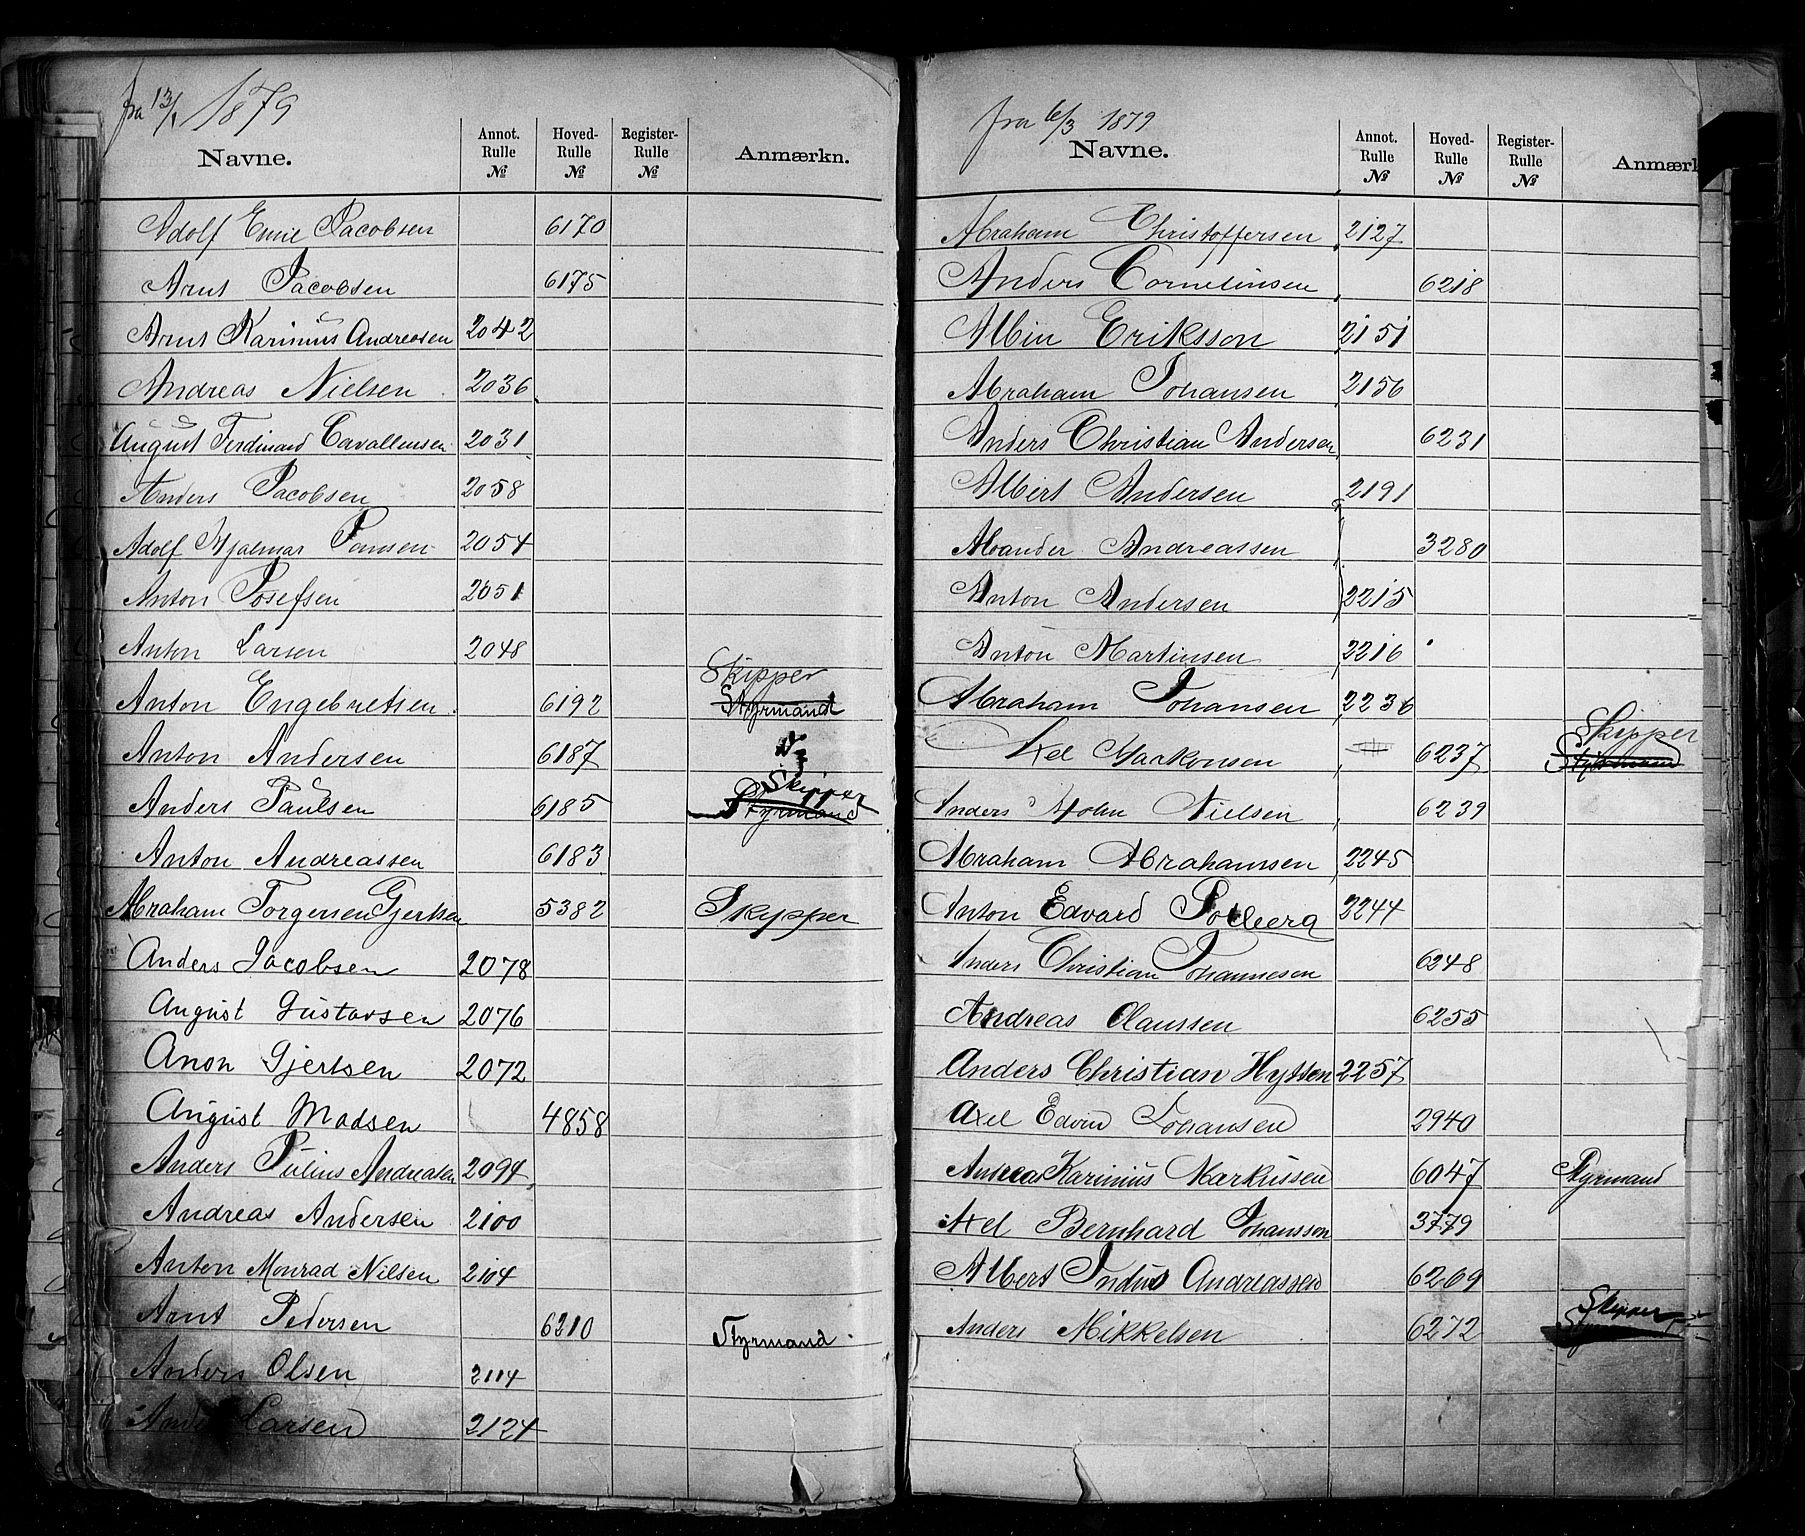 fra 13/1 1879
Navne. Annot. Rulle № Hoved-Rulle № Register-Rulle № Anmærkn.
Adolf Emil Jacobsen 6170
Arnt Jacobsen 6175
Arnt Karinius Andreasen 2042
Andreas Nielsen 2036
August Ferdinand Cavallensen 2031
Anders Jacobsen 2058
Adolf Hjalmar Jonsen 2054
Anton Josefsen 2051
Anton Larsen 2048
Skipper
Anton Engebretsen 6192 Styrmand
Anton Andersen 6187
Skipper
Anders Paulsen 6185 Styrmand
Anton Andreassen 6183
Abraham Torgersen Gjertsen 5382 Skipper
Anders Jacobsen 2078
August Gustavsen 2076
Anon Gjertsen 2072
August Madsen 4858
Anders Julius Andreasen 2094
Andreas Andersen 2100
Anton Monrad Nilsen 2104
Arnt Pedersen 6210 Styrmand
Anders Olsen 2114
Larsen 2124
fra 6/3 1879
Navne. Annot. Rulle № Hoved-Rulle № Register-Rulle № Anmærk
Abraham Christoffersen 2127
Anders Corneliusen 6218
Albin Eriksson 2151
Abraham Johansen 2156
Anders Christian Andersen 6231
Albert Andersen 2191
Andreassen 3280
Anton Andersen 2215
Anton Martinsen 2216
Abraham Johansen 2236
Skipper
Axel Haakonsen 6237 Styrmand
Anders Holm Nielsen 6239
Abraham Abrahamsen 2245
Anton Edvard Solberg 2244
Anders Christian Johannesen 6248
Andreas Olaussen 6255
Anders Christian Hytten 2257
Axel Edvin Johansen 2940
Andreas Karinius Markussen 6047 Styrmand
Axel Bernhard Johansson 3779
Albert Indius Andreassen 6269
Skipper
Anders Mikkelsen 6272